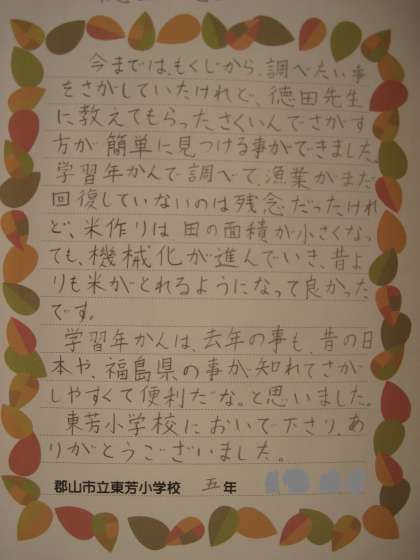 今までは、もくじから、調べたい事
をさがしていたけれど、徳田先生
に教えてもらったさくいんでさがす
方が簡単に見つける事ができました。
学習年かんで調べて、漁業がまだ
回復していないのは残念だったけれ
ど、米作りは田の面積が小さくなっ
ても、機械化が進んでいき、昔よ
りも米がとれるようになって良かった
です。
学習年かんは、去年の事も、昔の日
本や、福島県の事が知れてさがし
しやすくて便利だな。と思いました。
東芳小学校において下さり、あ
りがとうございました。
郡山市立東芳小学校 五年